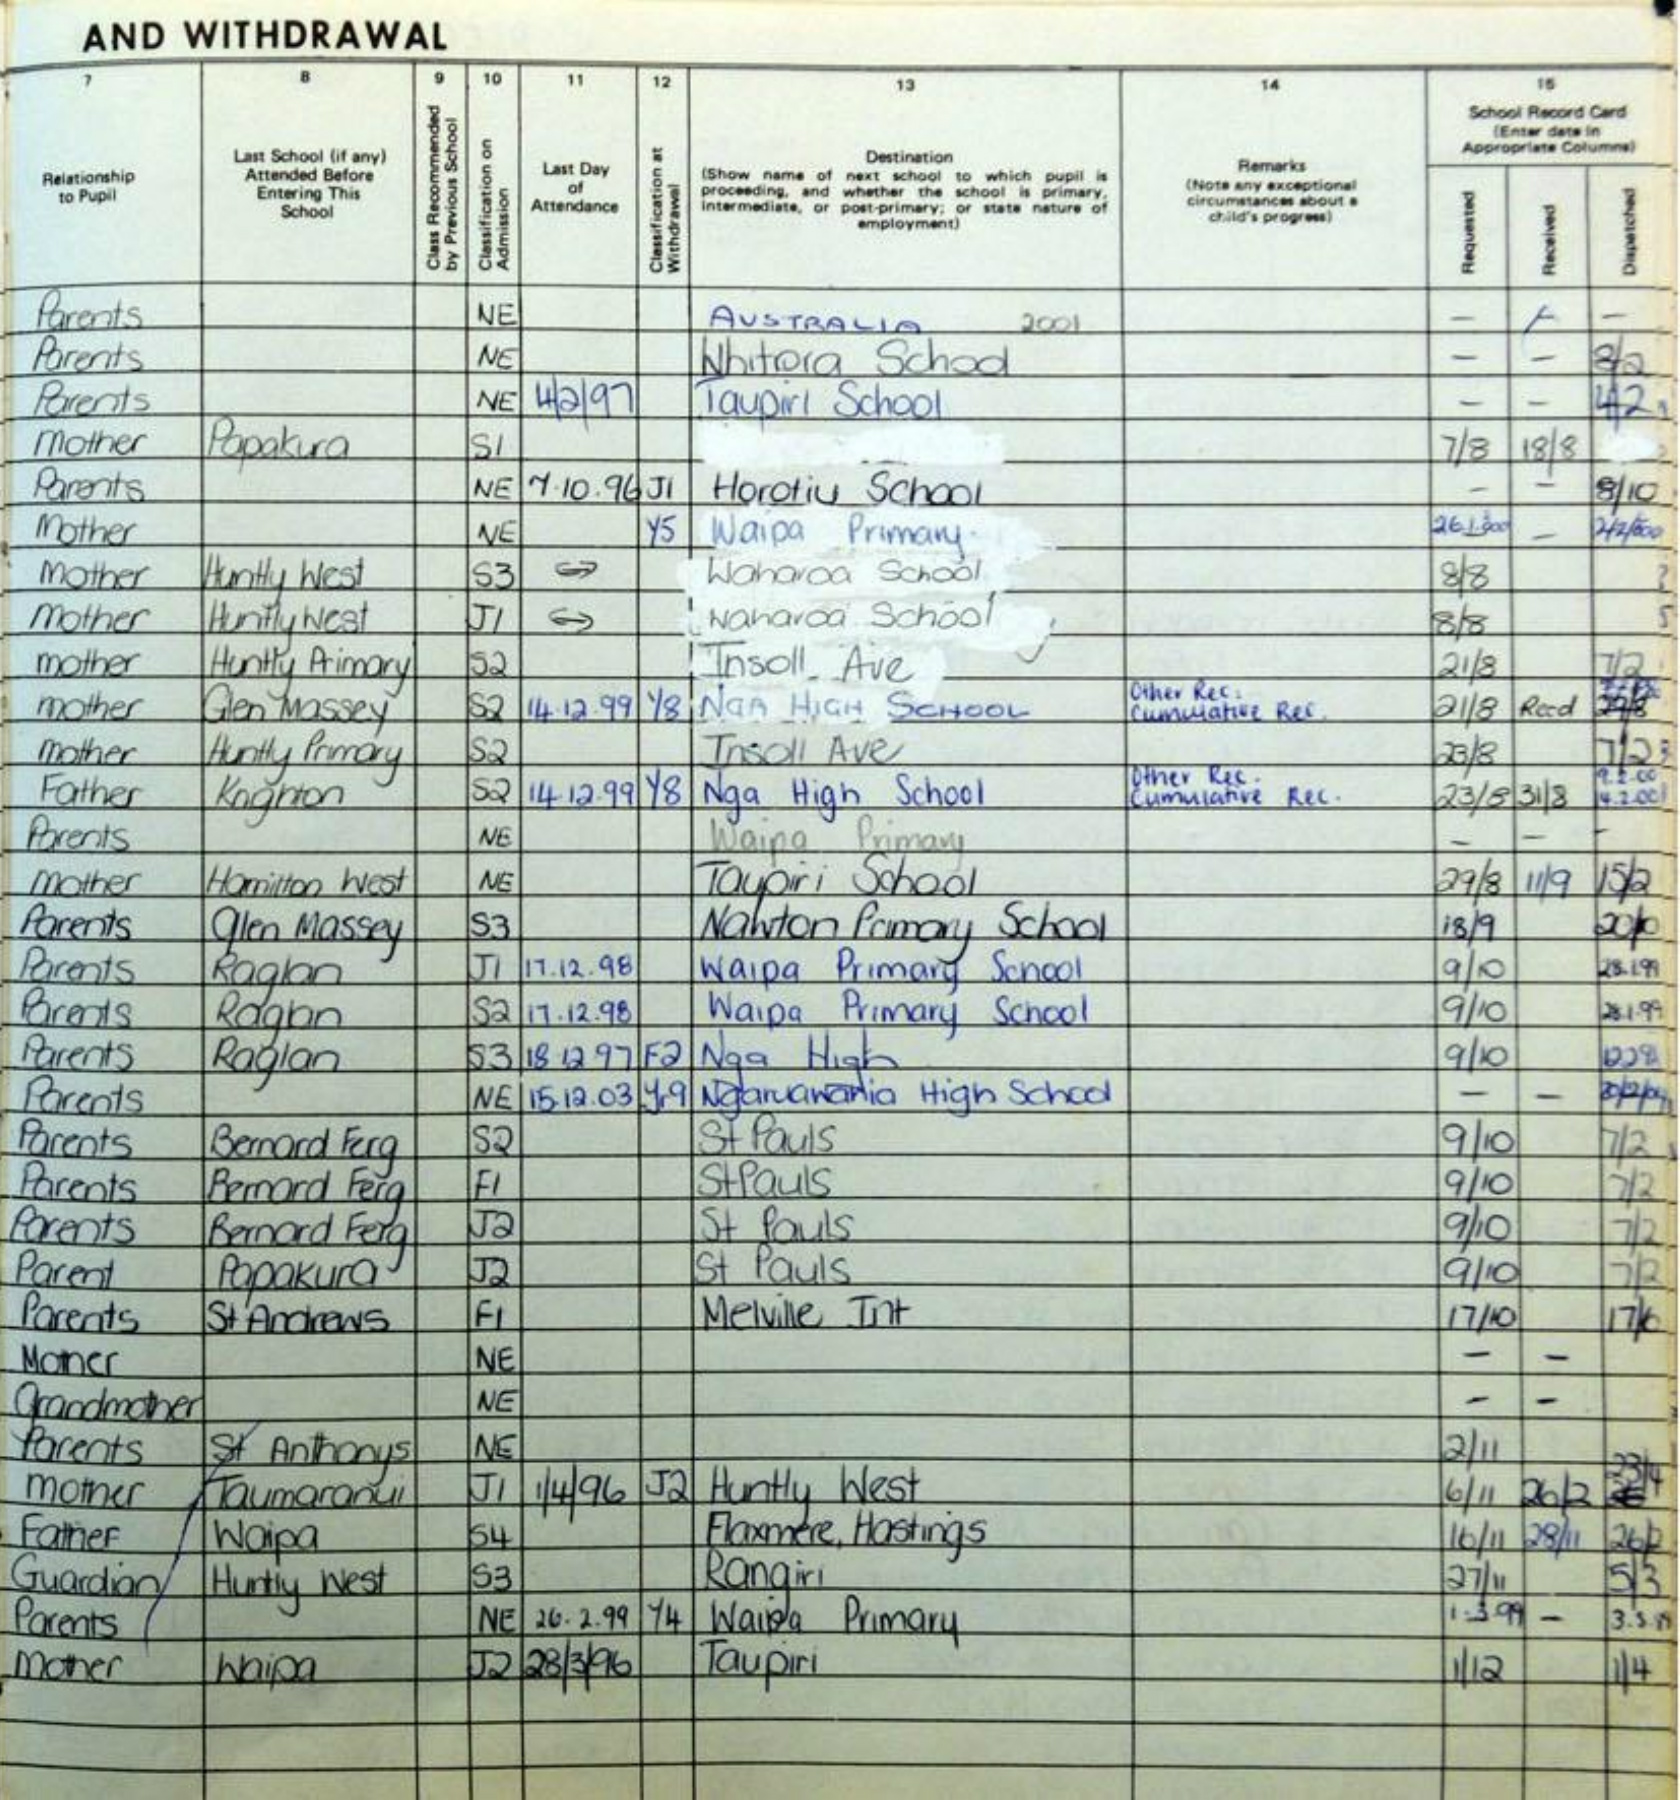 AND WITHDRAWAL
7 8 9 10 11 12 13 14 15
Relationship to Pupil
Last School (if any) Attended Before Entering This School
Class Recommended by Previous School
Classification on Admission
Last Day of Attendance
Classification at Withdrawal
Destination
(Show name of next school to which pupil is proceeding, and whether the school is primary, intermediate, or post-primary; or state nature of employment)
Remarks
(Note any exceptional circumstances about a child's progress)
School Record Card
(Enter date in Appropriate Columns)
Requested Received Dispatched
Parents NE AUSTRALIA 2001 — —
Parents NE Whitora School — — 8/2
Parents NE 4/2/97 Taupiri School — — 4/2
Mother Papakura S1 7/8 18/8
Parents NE 7.10.96 J1 Horotiu School - - 8/10
Mother NE Y5 Waipa Primary —
Mother Huntly West S3 Waharoa School 8/8
Mother Huntly West J1 Waharoa School 8/8
mother Huntly Primary S2 Insoll Ave 21/8 7/2
mother Glen Massey S2 14.12.99 Y8 NGA HIGH SCHOOL Other Rec. Cumulative Rec. 21/8 Recd
mother Huntly Primary S2 Insoll Ave 23/8 7/2
Father Knighton S2 14.12.99 Y8 Nga High School Other Rec. Cumulative Rec. 23/8 31/8 9.2.00 4.2.00
Parents NE Waipa Primary — — -
Mother Hamilton West NE Taupiri School 29/8 11/9 15/2
Parents Glen Massey S3 Nawton Primary School 18/9
Parents Raglan J1 17.12.98 Waipa Primary School 9/10 28.1.99
Parents Raglan S2 17.12.98 Waipa Primary School 9/10 28.1.99
Parents Raglan S3 18 12 97 F2 Nga High 9/10
Parents NE 15.12.03 Yr9 Ngaruawahia High School — —
Parents Bernard Ferg S2 St Pauls 9/10 7/2
Parents Bernard Ferg F1 St Pauls 9/10 7/2
Parents Bernard Ferg J2 St Pauls 9/10 7/2
Parent Papakura J2 St Pauls 9/10 7/2
Parents St Andrews F1 Melville Int 17/10
Mother NE — —
Grandmother NE — —
Parents St Anthonys NE 2/11
mother Taumaranui J1 1/4/96 J2 Huntly West 6/11 26/2 23/4
Father Waipa S4 Flaxmere, Hastings 16/11 28/11 26/2
Guardian Huntly West S3 Rangiri 27/11 5/3
Parents NE 26.2.99 Y4 Waipa Primary 1.3.99 —
Mother Waipa J2 28/3/96 Taupiri 1/12 1/4